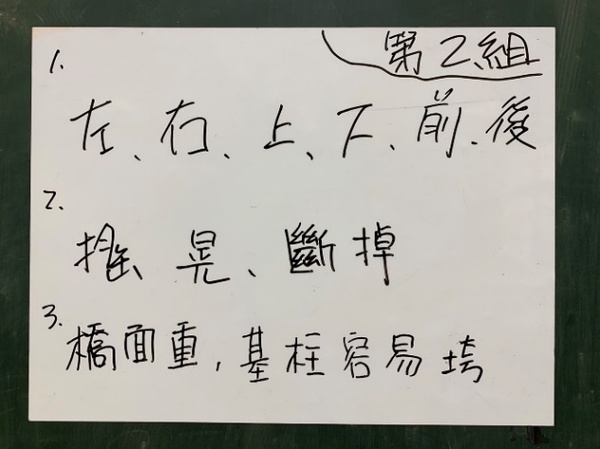 第2組
1.
左、右、上、下、前、後
2.
搖、晃、斷掉
3.
橋面重，基柱容易垮